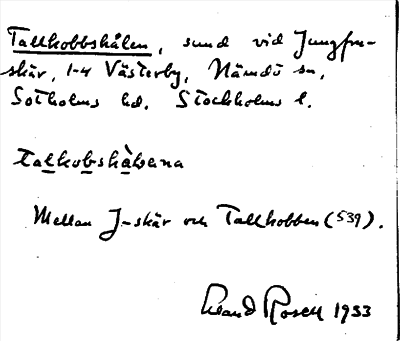 Tallkobbshålen, sund vid Jungfru-
skär, 1-4 Västerby, Nämdö sn,
Sotholms hd. Stockholms l.
Mellan J-skär och Tallkobben (539).
Rosell 1933